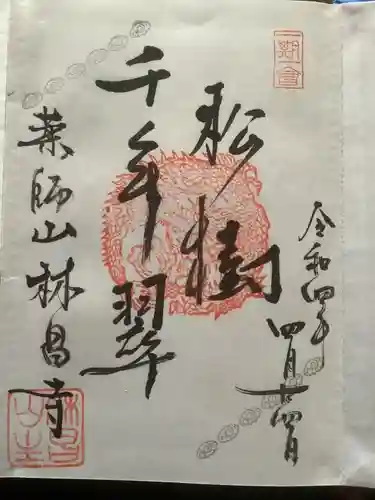 一期一會
令和四年
四月廿四日
松樹
千年翠
薬師山林昌寺